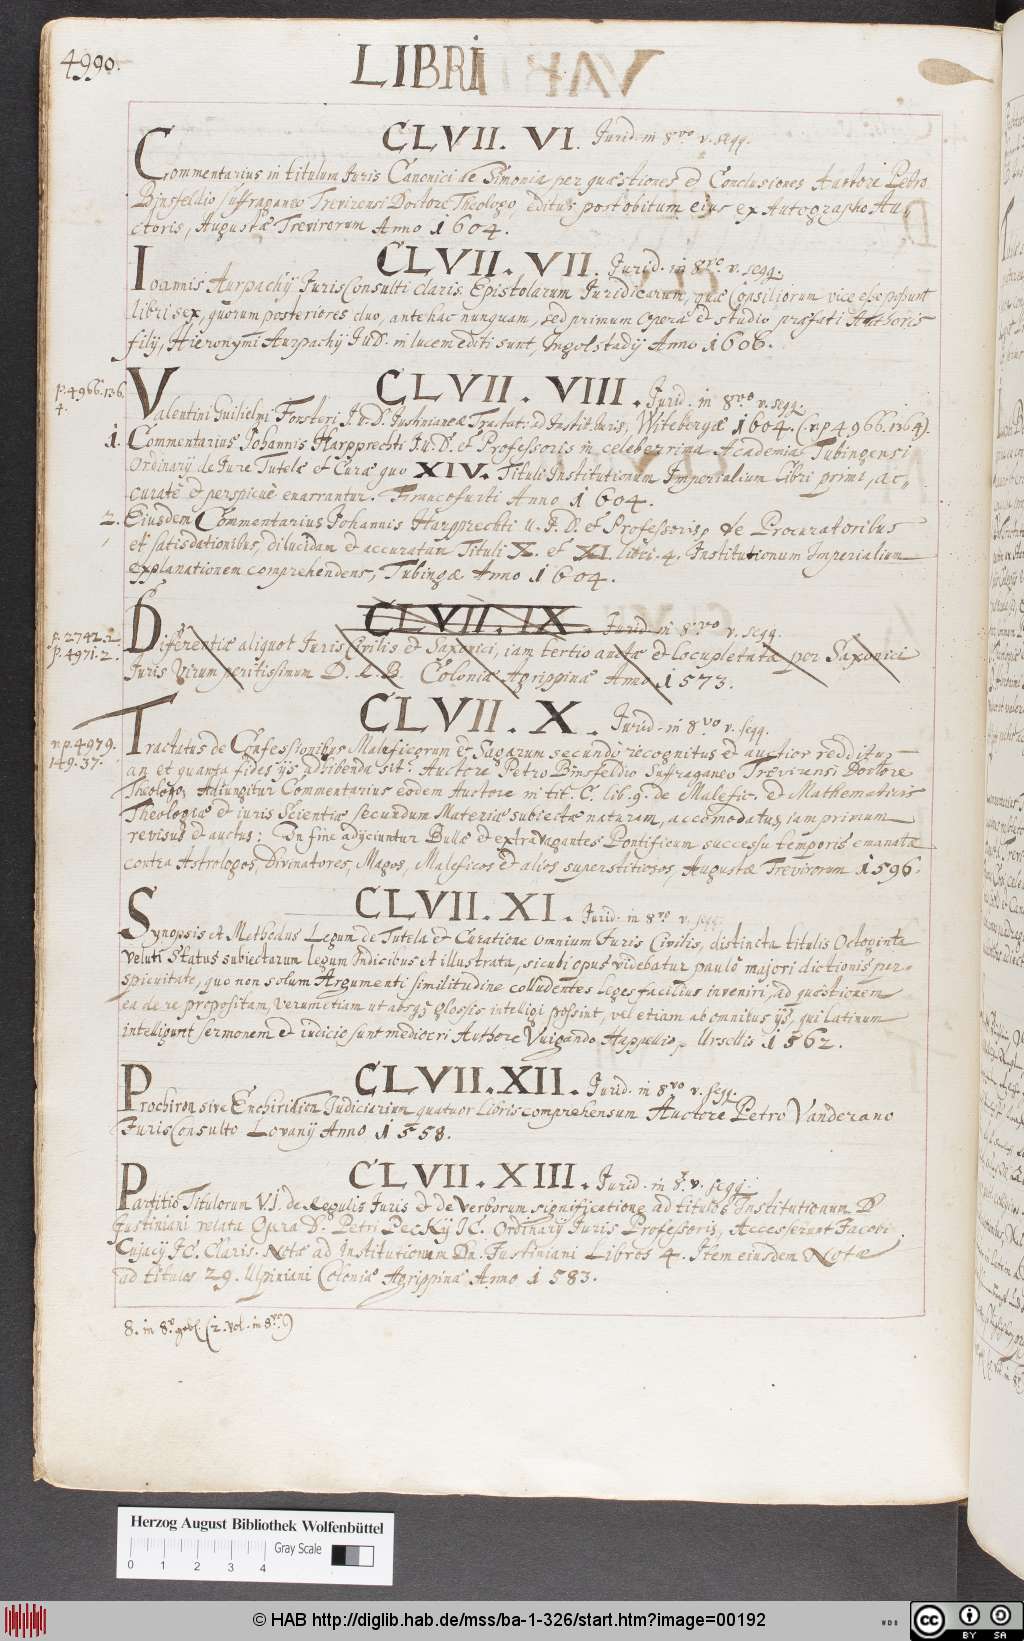 4990.
LIBRI
CLVII. VI. Jurid. in 8vo v. segq.
Commentarius in titulum Juris Canonici de Simonia per quæstiones et Conclusiones Auctore Petro
Binsfeldio suffraganeo Trevirensi Doctore Theologo, editus post obitum eius ex Autographo Au„
ctoris, Augustæ Trevirorum Anno 1604.
CLVII. VII. Jurid. in 8vo v. segq.
Ioannis Aurpachij JurisConsulti claris. Epistolarum Juridicarum, quæ Consiliorum vice esse possunt
libri sex, quorum posteriores duo, ante hac nunquam, sed primum opera et studio præfati Authoris
filij, Hieronymi Aurpachij J.u.D. in lucem editi sunt, Ingolstadij Anno 1606.
CLVII. VIII. Jurid. in 8vo v. segq.
p. 4966.136.
4.
Valentini Guilielmi Forsteri J.u.D. Justinianeæ Tractat: ad Instit. Juris, Witebergæ 1604. (v. p 4966.136 4).
1. Commentarius Johannis Harpprechti J.u.D. et Professoris in celeberrima Academia Tubingensi
Ordinarij de Jure Tutelæ et Curæ quo XIV. Tituli Institutionum Imperialium Libri primi, ac„
curatè et perspicuè enarrantur. Francofurti Anno 1604.
2. Eiusdem Commentarius Johannis Harpprechti u. J. D. et Professoris, de Procuratoribus
et satisdationibus, dilucidam et accuratam Tituli X. et XI libri. 4. Institutionum Imperialium
explanationem comprehendens, Tubingæ Anno 1604.
CLVII. IX. Jurid. in 8vo v. segq.
p. 2742.2
p. 4971.2.
Differentiæ aliquot Juris Civilis et Saxonici, iam tertio auctæ et locupletatæ per Saxonici
Juris Virum peritissimum D. L. B. Coloniæ Agrippinæ Anno 1573.
CLVII. X. Jurid. in 8vo v. segq.
v. p. 4979.
149.37.
Tractatus de Confessionibus Maleficorum et Sagarum secundo recognitus et auctior redditus
an et quanta fides ijs adhibenda sit? Auctore Petro Binsfeldio Suffraganeo Trevirensi Doctore
Theologo, Adiungitur Commentarius eodem Auctore in tit. C. lib. 9. de Malefic. et Mathematicis
Theologiæ et iuris Scientiæ secundum Materiæ subiectæ naturam, accomodatus, iam primum
revisus et auctus: In fine adijciuntur Bullæ et extravagantes Pontificum successu temporis emanatæ
contra Astrologos, Divinatores, Magos, Maleficos et alios superstitiosos, Augustæ Trevirorum 1596.
CLVII. XI. Jurid. in 8vo v. segq.
Synopsis et Methodus Legum de Tutela et Curatione omnium Juris Civilis, distincta titulis Octoginta
veluti Status subiectarum legum Indicibus et illustrata, sicubi opus videbatur paulò majori dictionis per„
spicuitate, quo non solum Argumenti similitudine colludentes leges facilius inveniri, ad quæstionem
ea de re propositam, verumetiam ut absq glossis intelligi possint, vel etiam ab omnibus ijs, qui latinum
intelligunt sermonem et iudicio sunt mediocri Authore Vuigando Happellio, Ursellis 1562.
CLVII. XII. Jurid. in 8vo v. segq.
Prochiron sive Enchiridion Judiciarium quatuor libris comprehensum Auctore Petro Vanderano
JurisConsulto Lovanij Anno 1558.
CLVII. XIII. Jurid. in 8. v. segq.
Partitio Titulorum V.J. de Regulis Juris et de verborum significatione ad titulos Institutionum D.
Justiniani relata Opera D. Petri Peckij JC. Ordinarij Juris Professoris, Accesserunt Jacobi
Cujacij JC. Claris. Notæ ad Institutionum Dn. Justiniani Libros 4. Item eiusdem Notæ
ad titulos 29. Ulpiniani Coloniæ Agrippinæ Anno 1583.
8. in 8o. (2. Vol. in 8vo)
Herzog August Bibliothek Wolfenbüttel
Gray Scale
0 1 2 3 4
© HAB http://diglib.hab.de/mss/ba-1-326/start.htm?image=00192
WDB
cc BY SA